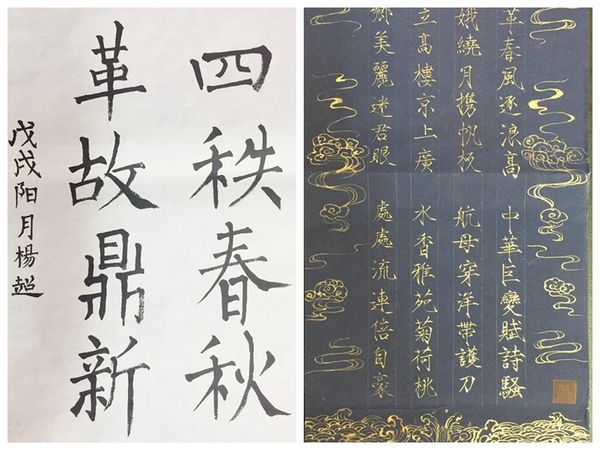 四秩春秋
革故鼎新
戊戌阳月楊超
革春風逐浪高 中華巨變賦詩騷
娥繞月携帆 航母穿洋帶護刀
立高樓京上廣 水香雅苑菊荷桃
鄉美麗迷君眼 處處流連倍自豪